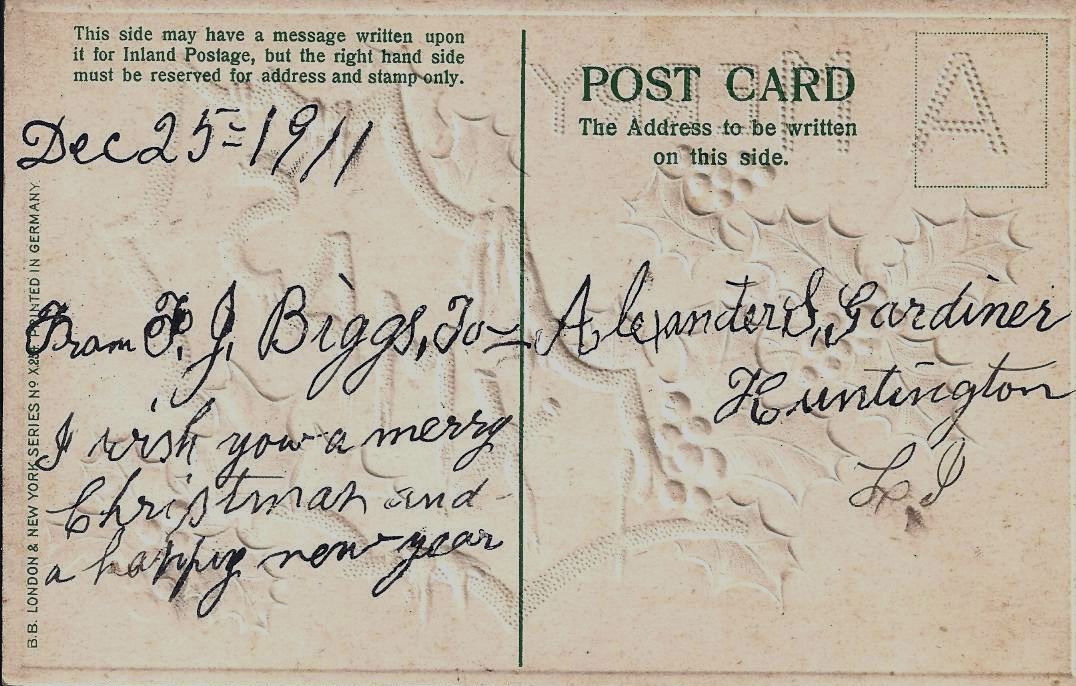 This side may have a message written upon
it for Inland Postage, but the right hand side
must be reserved for address and stamp only.
POST CARD
The Address to be written
on this side.
Dec 25=1911
From F. J. Biggs, To - Alexander S, Gardiner
Huntington
L I
I wish you a merry
Christmas and
a happy new year
B.B. LONDON & NEW YORK SERIES No PRINTED IN GERMANY.